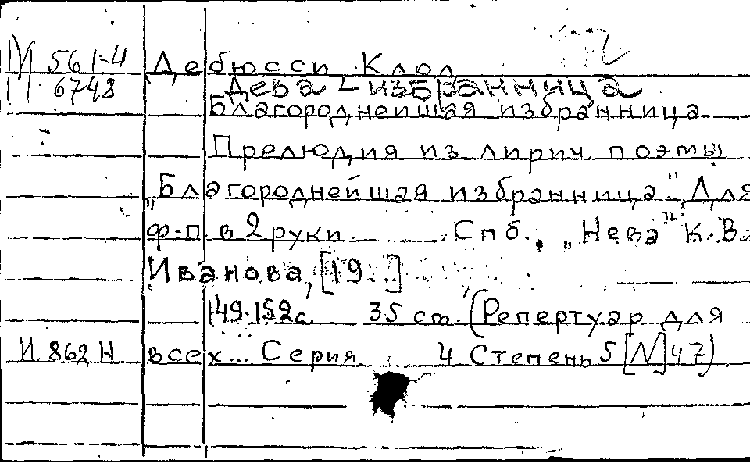 М 561-4 Дебюсси Клод
П. 6748 Дева - избранница
Благороднейшая избранница
Прелюдия из лирич поэмы
„Благороднейшая избранница" Для
ф-п. в 2 руки Спб., „Нева" К. В.
Иванова, [19..]
149-152с 35 cm. (Репертуар для
И. 862 Н всех... Серия 4 Степень 5 [N] 47)